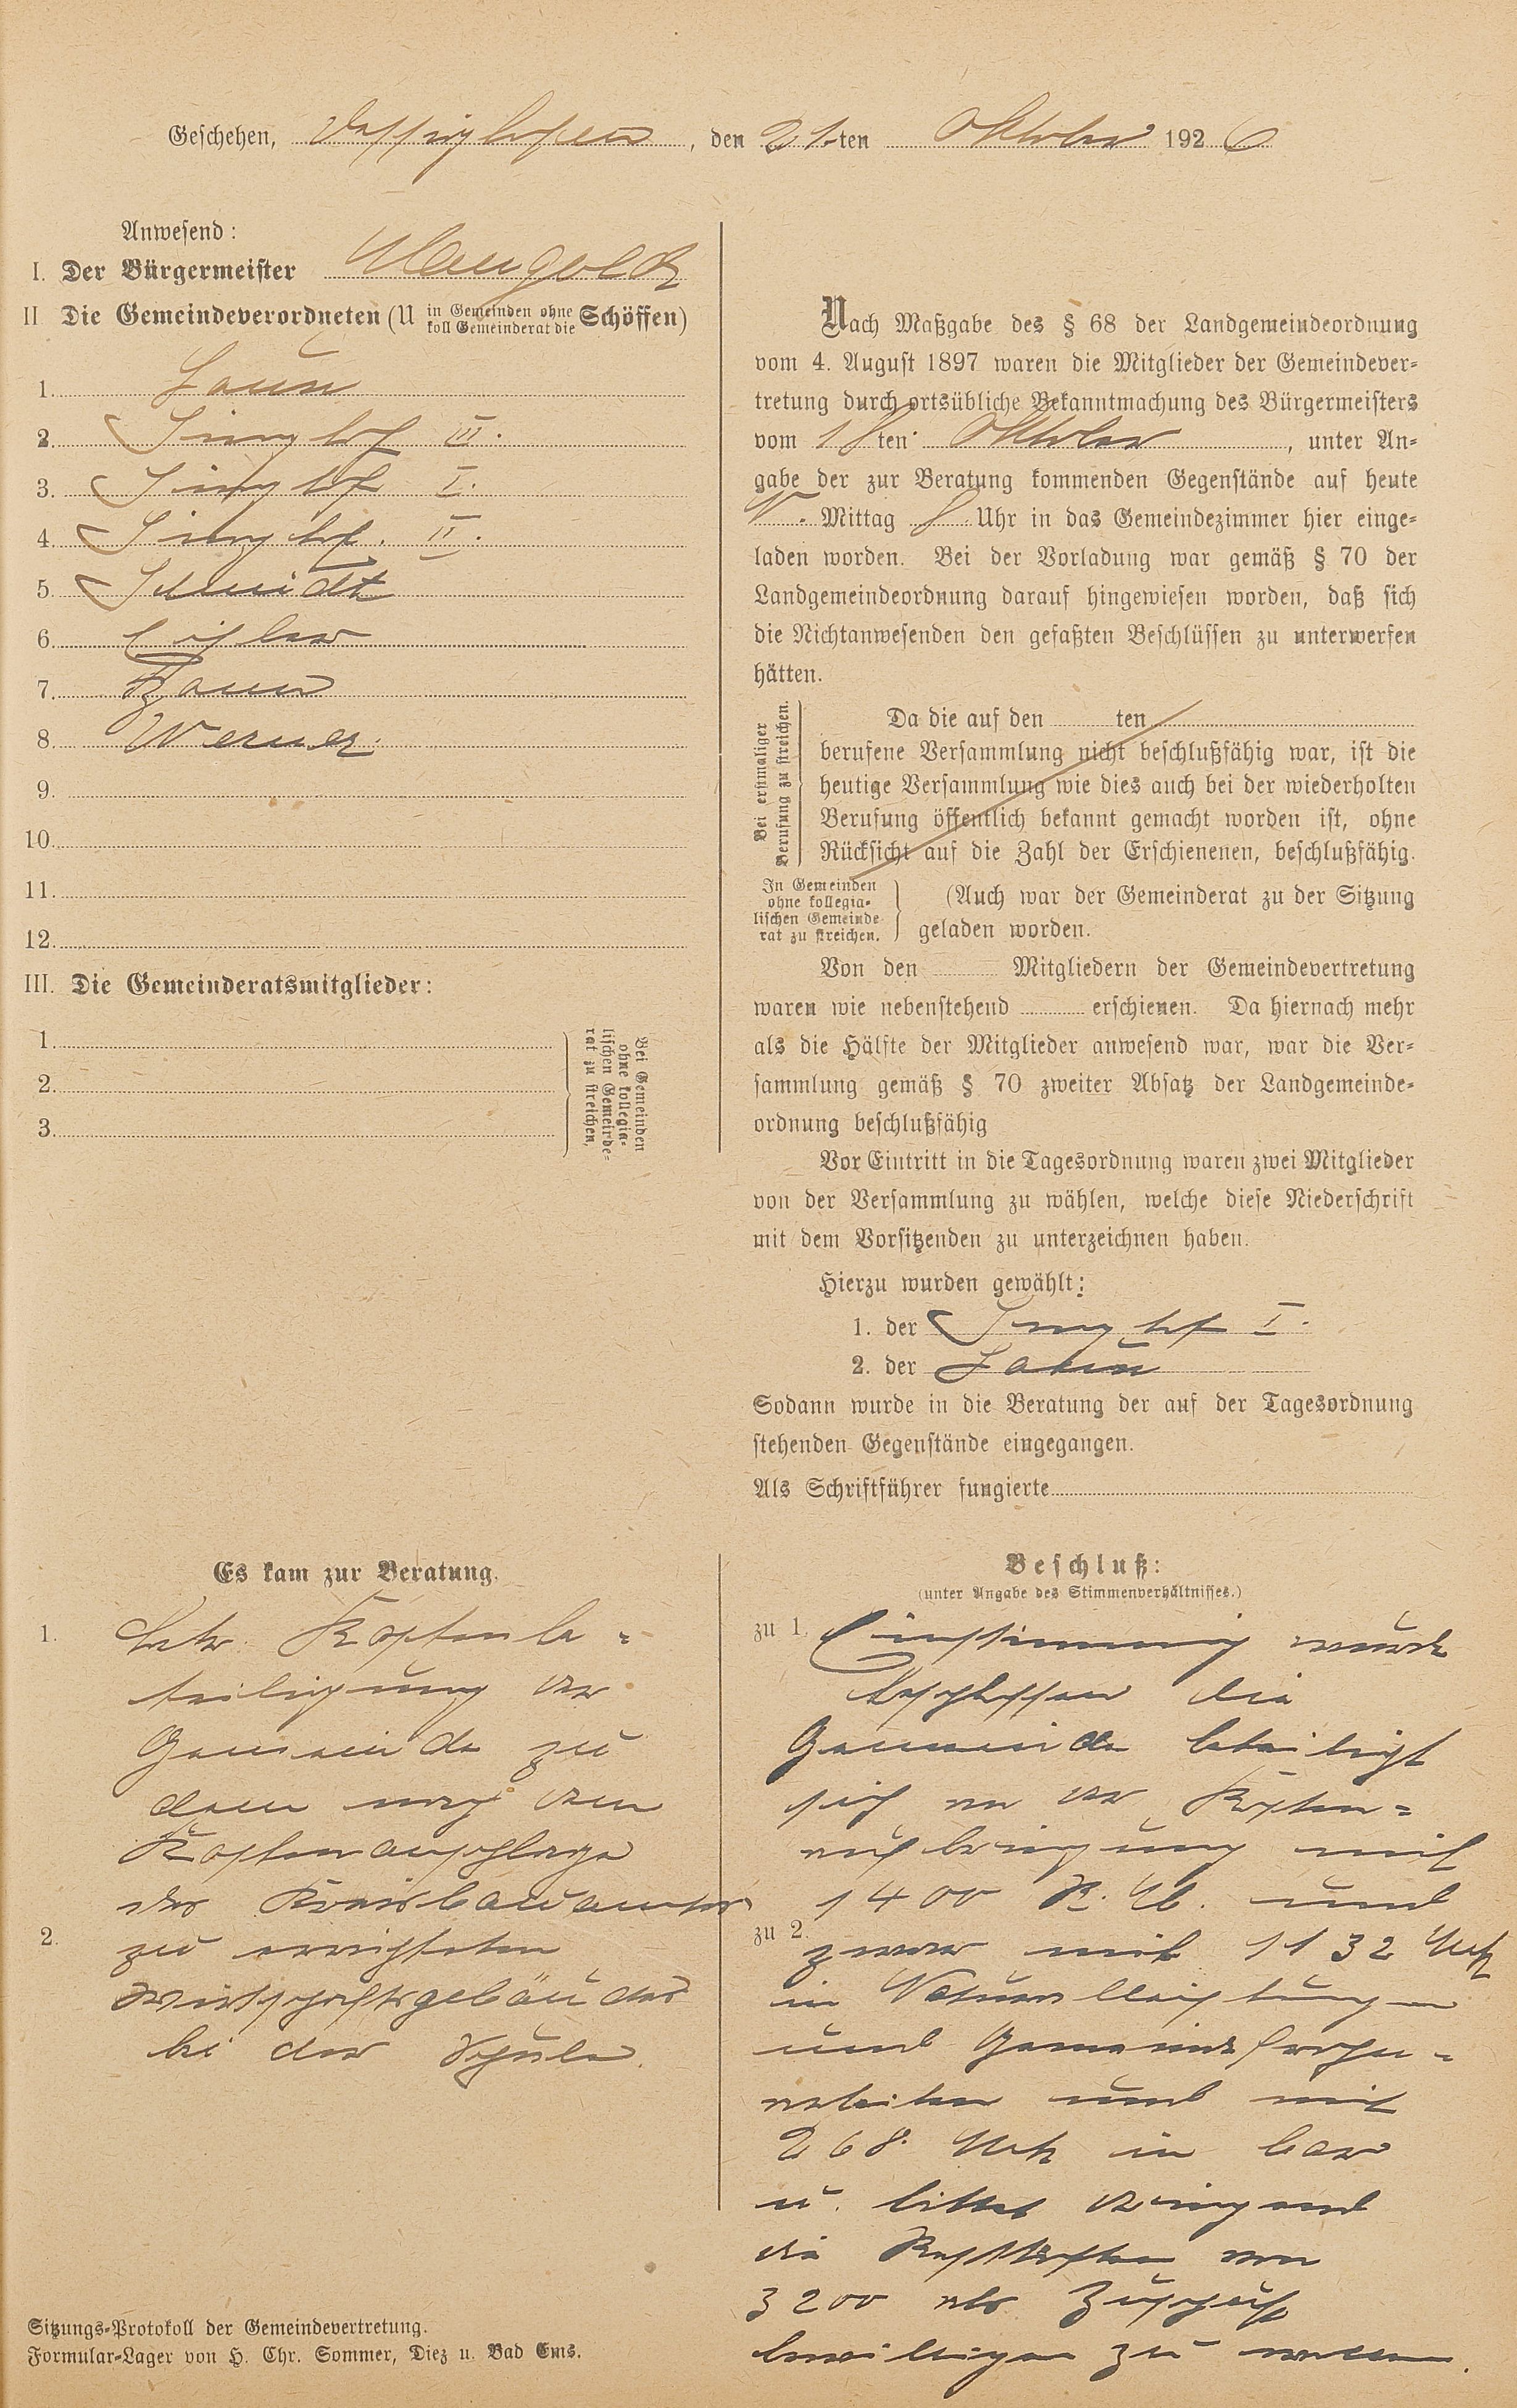 Geschehen, Dessighofen, den 21.ten Oktober 1926
Anwesend:
I. Der Bürgermeister Mangold
II Die Gemeindeverordneten (U in Gemeinden ohne koll Gemeinderat die Schöffen)
1. Laun
2. Singhof III.
3. Singhof I.
4. Singhof. II.
5. Schmidt
6.
7.
8. Werner.
9.
10.
11.
12.
III. Die Gemeinderatsmitglieder:
1.
2.
3.
Bei Gemeinden
ohne kollegia-
lischen Gemeinde-
rat zu streichen.
Nach Maßgabe des § 68 der Landgemeindeordnung
vom 4. August 1897 waren die Mitglieder der Gemeindever-
tretung durch ortsübliche Bekanntmachung des Bürgermeisters
vom 18ten Oktober, unter An-
gabe der zur Beratung kommenden Gegenstände auf heute
N. Mittag 8 Uhr in das Gemeindezimmer hier einge-
laden worden. Bei der Vorladung war gemäß § 70 der
Landgemeindeordnung darauf hingewiesen worden, daß sich
die Nichtanwesenden den gefaßten Beschlüssen zu unterwerfen
hätten.
Bei erstmaliger
Berufung zu streichen.
Da die auf den ten
berufene Versammlung nicht beschlußfähig war, ist die
heutige Versammlung wie dies auch bei der wiederholten
Berufung öffentlich bekannt gemacht worden ist, ohne
Rücksicht auf die Zahl der Erschienenen, beschlußfähig.
In Gemeinden
ohne kollegia-
lischen Gemeinde
rat zu streichen.
(Auch war der Gemeinderat zu der Sitzung
geladen worden.
Von den Mitgliedern der Gemeindevertretung
waren wie nebenstehend erschienen. Da hiernach mehr
als die Hälfte der Mitglieder anwesend war, war die Ver-
sammlung gemäß § 70 zweiter Absatz der Landgemeinde-
ordnung beschlußfähig
Vor Eintritt in die Tagesordnung waren zwei Mitglieder
von der Versammlung zu wählen, welche diese Niederschrift
mit dem Vorsitzenden zu unterzeichnen haben.
Hierzu wurden gewählt:
1. der Singhof I.
2. der Laun
Sodann wurde in die Beratung der auf der Tagesordnung
stehenden Gegenstände eingegangen.
Als Schriftführer fungierte
Es kam zur Beratung.
1. Betr. Kostenbe=
teiligung der
Gemeinde zu
dem nach dem
Kostenanschlage
des Kreisbauamtes
2. zu errichteten
Wirtschaftsgebäudes
bei der Schule.
Beschluß:
(unter Angabe des Stimmenverhältnisses.)
zu 1. Einstimmig wurde
beschlossen die
Gemeinde beteiligt
sich an der Kosten=
aufbringung mit
1400 R. M. und
zu 2. zwar mit 1132 Mk
in Naturalleistungen
und Gemeindefrohn=
arbeiten und mit
268. Mk in bar
u. bittet dringend
die Restkosten von
3200 als Zuschuß
bewilligen zu wollen.
Sitzungs-Protokoll der Gemeindevertretung.
Formular-Lager von H. Chr. Sommer, Diez u. Bad Ems.